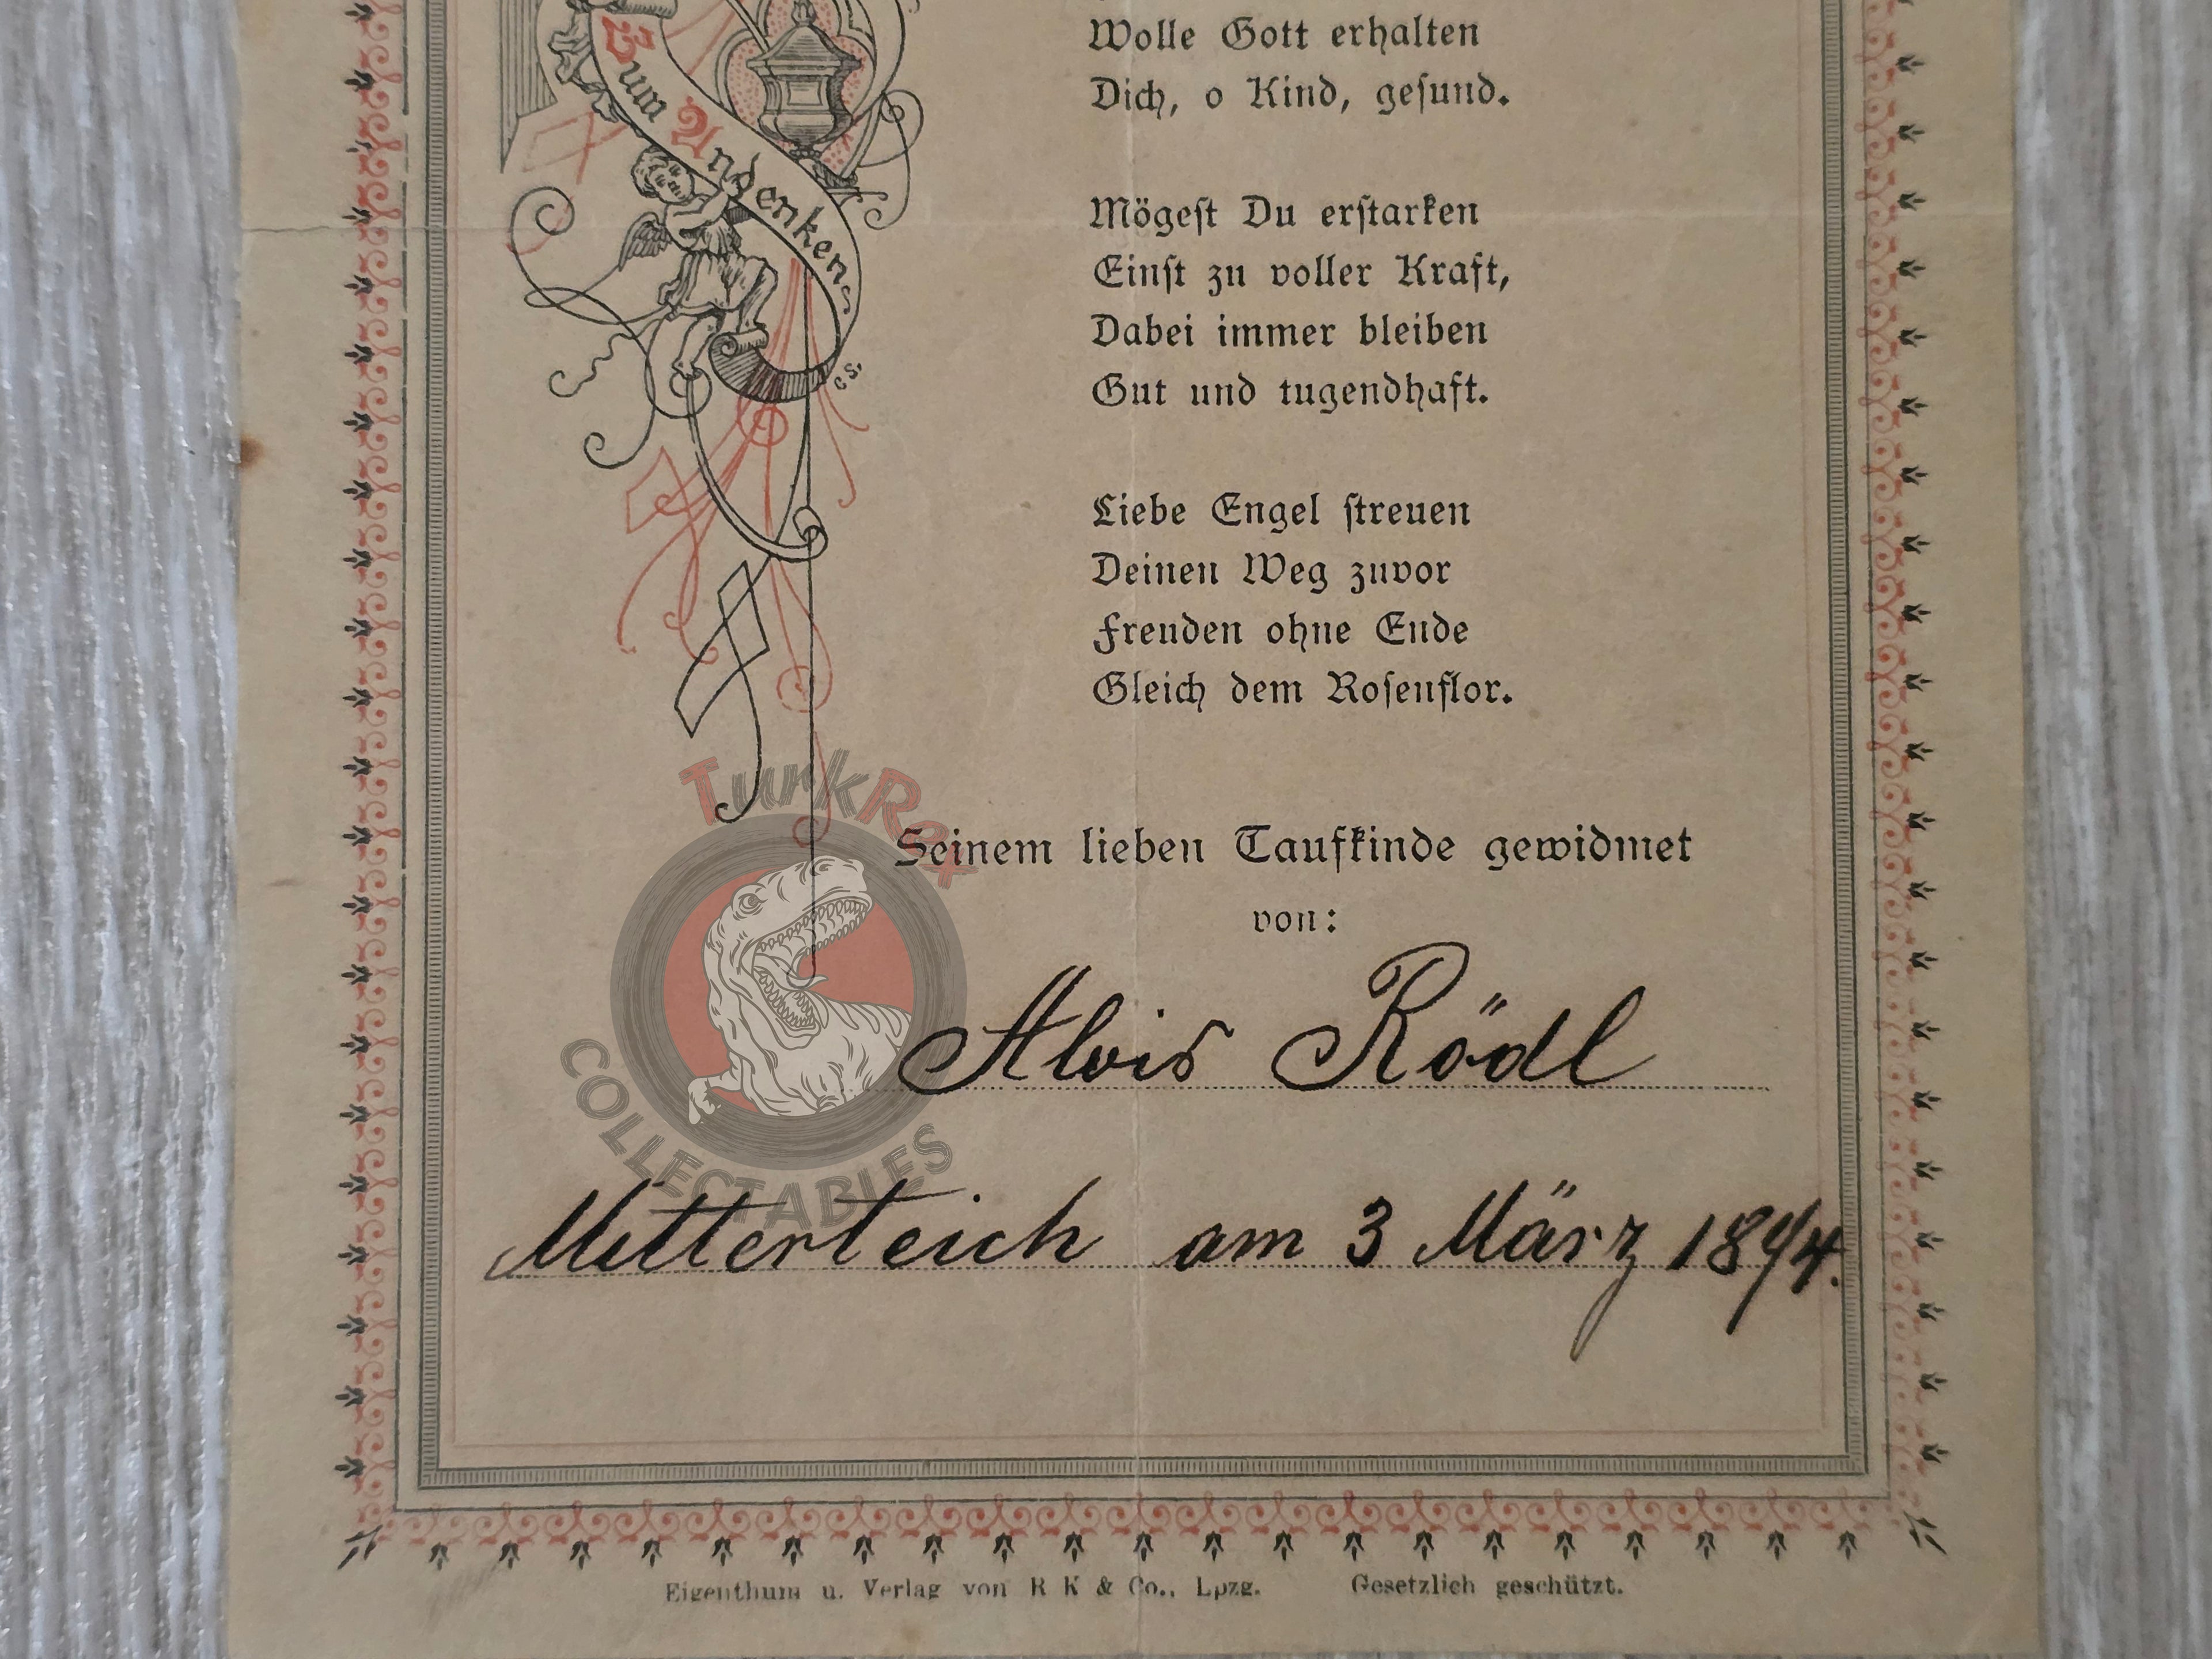 Zum Andenken
Wolle Gott erhalten
Dich, o Kind, gesund.
Mögest Du erstarken
Einst zu voller Kraft,
Dabei immer bleiben
Gut und tugendhaft.
C.S.
Liebe Engel streuen
Deinen Weg zuvor
Freuden ohne Ende
Gleich dem Rosenflor.
TurkRex
COLLECTABLES
Seinem lieben Taufkinde gewidmet
von:
Alois Rödl
Mitterteich am 3 März 1894.
Eigenthum u. Verlag von R K & Co., Lpzg. Gesetzlich geschützt.